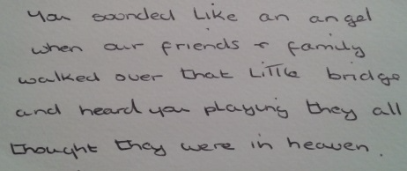 You sounded like an angel
when our friends + family
walked over that little bridge
and heard you playing they all
thought they were in heaven.